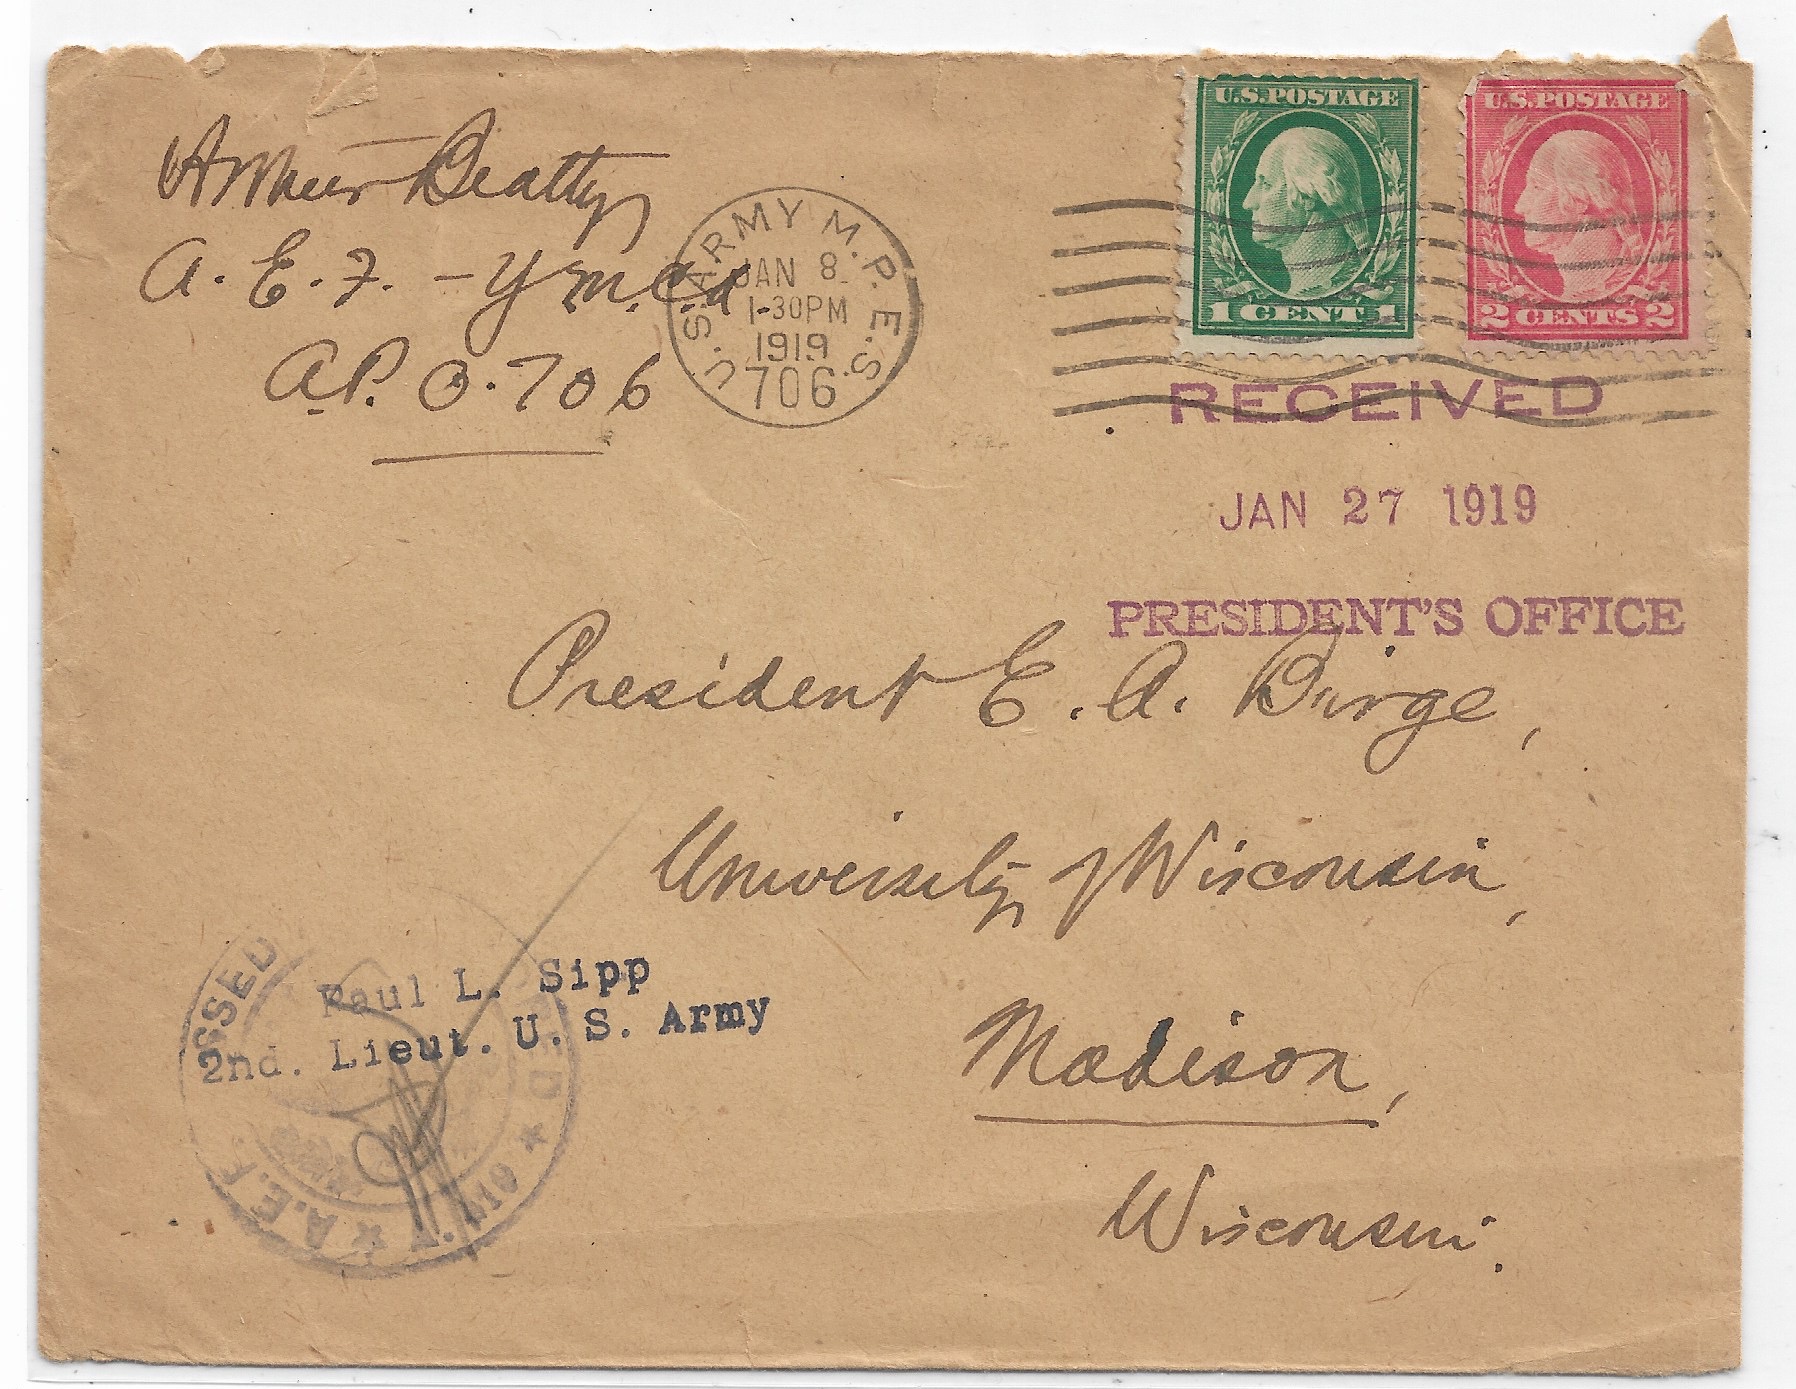 Arthur Beatty
A. E. F. - Y M. C. A
A. P. O. 706
U.S. ARMY M.P.E.S.
JAN 8
1-30PM
1919
706
U.S. POSTAGE
1 CENT 1
U.S. POSTAGE
2 CENTS 2
RECEIVED
JAN 27 1919
PRESIDENT'S OFFICE
President E. A. Birge,
University of Wisconsin,
Madison,
Wisconsin.
Paul L. Sipp
2nd. Lieut. U. S. Army
A.E.F.